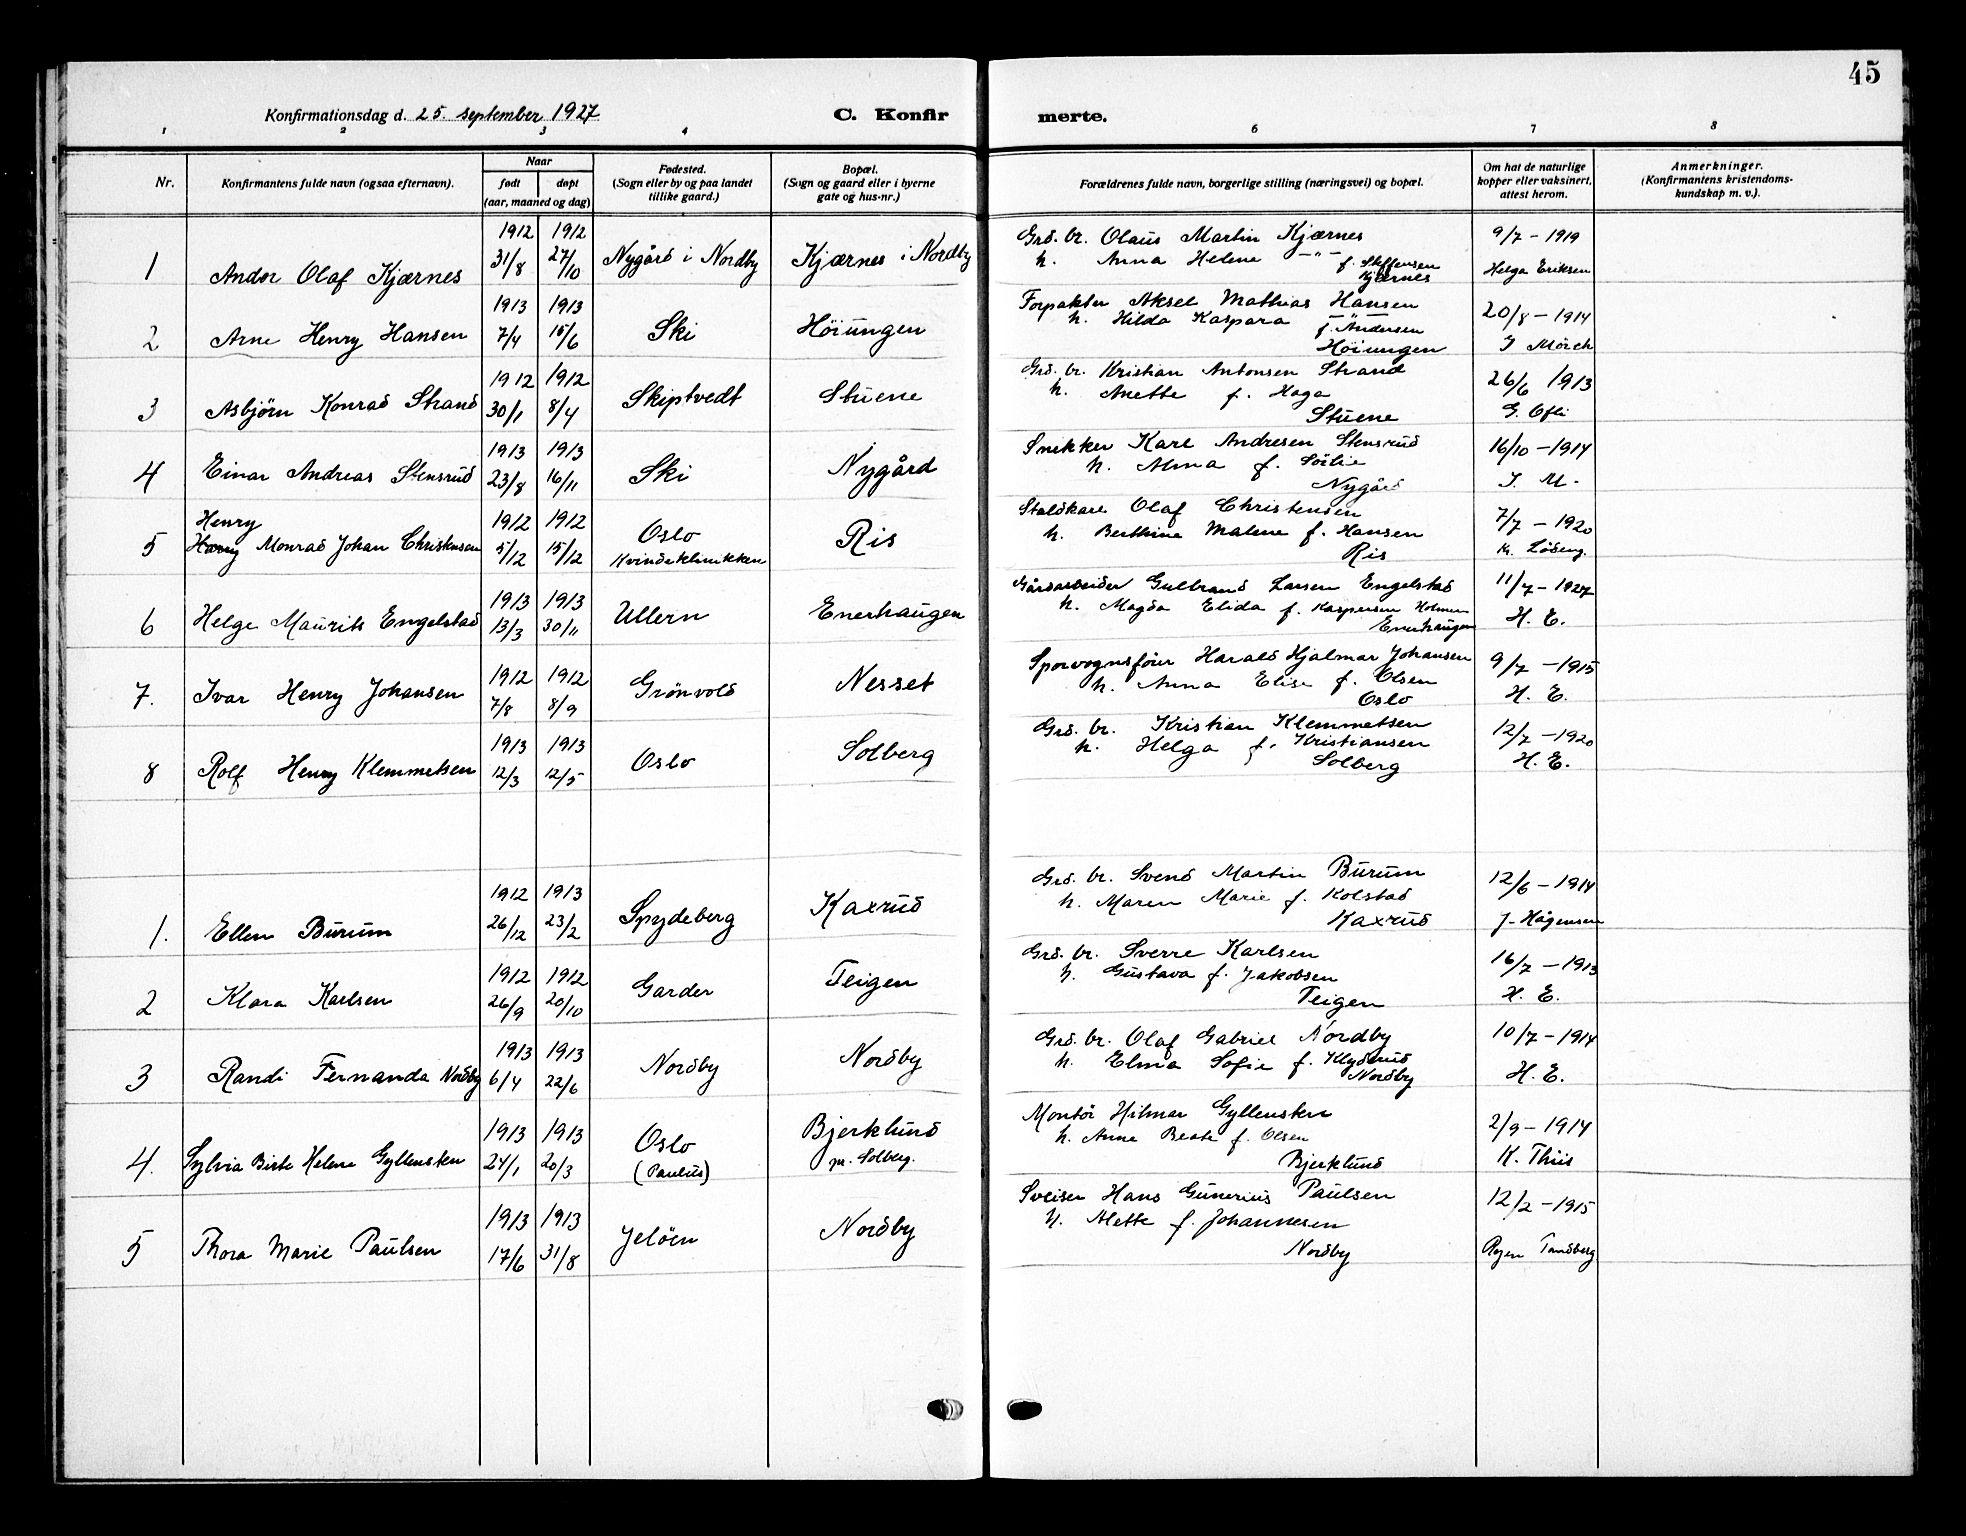 45
Konfirmationsdag d. 25. september 1927
C. Konfirmerte.
1 2 3 4 6 7 8
Nr.
Konfirmantens fulde navn (ogsaa efternavn).
Naar
født døpt
(aar, maaned og dag)
Fødested.
(Sogn eller by og paa landet
tillike gaard.)
Bopæl.
(Sogn og gaard eller i byerne
gate og hus-nr.)
Forældrenes fulde navn, borgerlige stilling (næringsvei) og bopæl.
Om hat de naturlige
kopper eller vaksinert,
attest herom.
Anmerkninger.
(Konfirmantens kristendoms-
kundskap m. v.).
1 Andor Olaf Kjærnes 1912 31/8 1912 27/10 Nygård i Nordby Kjærnes i Nordby
Grd. br. Olaus Martin Kjærnes
h. Anna Helene -"- f. Steffensen
Kjærnes
9/7 - 1919
Helga Eriksen
2 Arne Henry Hansen 1913 7/4 1913 15/6 Ski Höiungen
Forpakter Aksel Mathias Hansen
h. Hilda Kaspara -"- f. Andersen
Höiungen
20/8 - 1914
J Mörch
3 Asbjörn Konrad Strand 1912 30/1 1912 8/4 Skiptvedt Stuene
Grd. br. Kristian Antonsen Strand
h. Anette f. Haga
Stuene
26/6 1913
G. Ofti
4 Einar Andreas Stensrud 1913 23/8 1913 16/11 Ski Nygård
Snikker Karl Andresen Stensrud
h. Alma f. Sörlie
Nygård
16/10 - 1914
J. M.
5 Henry
Harry Monrad Johan Christensen 1912 5/12 1912 15/12 Oslo
Kvindeklinikken Ris
Staldkarl Olaf Christensen
h. Berthine Malene f. Hansen
Ris
7/7 - 1920
K. Lödeng.
6 Helge Maurits Engelstad 1913 13/3 1913 30/11 Ullern Enerhaugen
Gårdsarbeider Gulbrand Larsen Engelstad
h. Magda Elida f. Kaspersen Holmen
Enerhaugen
11/7 - 1927
H. E.
7. Ivar Henry Johansen 1912 7/8 1912 8/9 Grönvold Nesset
Sporvognsförer Harald Hjalmar Johansen
h. Anna Elise f. Olsen
Oslo
9/7 - 1915
H. E.
8 Rolf Henry Klemmetsen 1913 12/3 1913 12/5 Oslo Solberg
Grd. br. Kristian Klemmetsen
h. Helga f. Kristiansen
Solberg
12/7 - 1920
H. E.
1. Ellen Burum 1912 26/12 1913 23/2 Spydeberg Kaxrud
Grd. br. Svend Martin Burum
h. Maren Marie f. Kolstad
Kaxrud
12/6 - 1914
J. Hågensen
2 Klara Karlsen 1912 26/9 1912 20/10 Garder Teigen
Grd. br. Sverre Karlsen
h. Gustava f. Jakobsen
Teigen
16/7 - 1913
H. E.
3 Randi Fernanda Nordby 1913 6/4 1913 22/6 Nordby Nordby
Grd. br. Olaf Gabriel Nordby
h. Elma Sofie f. Klydsrud
Nordby
10/7 - 1914
H. E.
4. Sylvia Birte Helene Gyllensten 1913 24/1 1913 20/3 Oslo
(Paulus) Bjerklund
pr. Solberg.
Montör Hilmar Gyllensten
h. Anne Beate f. Olsen
Bjerklund
2/9 - 1914
K. Thiis
5 Thora Marie Paulsen 1913 17/6 1913 31/8 Jelöen Nordby
Sveiser Hans Gunerius Paulsen
h. Alette f. Johannesen
Nordby
12/2 - 1915
Ryen Tandberg